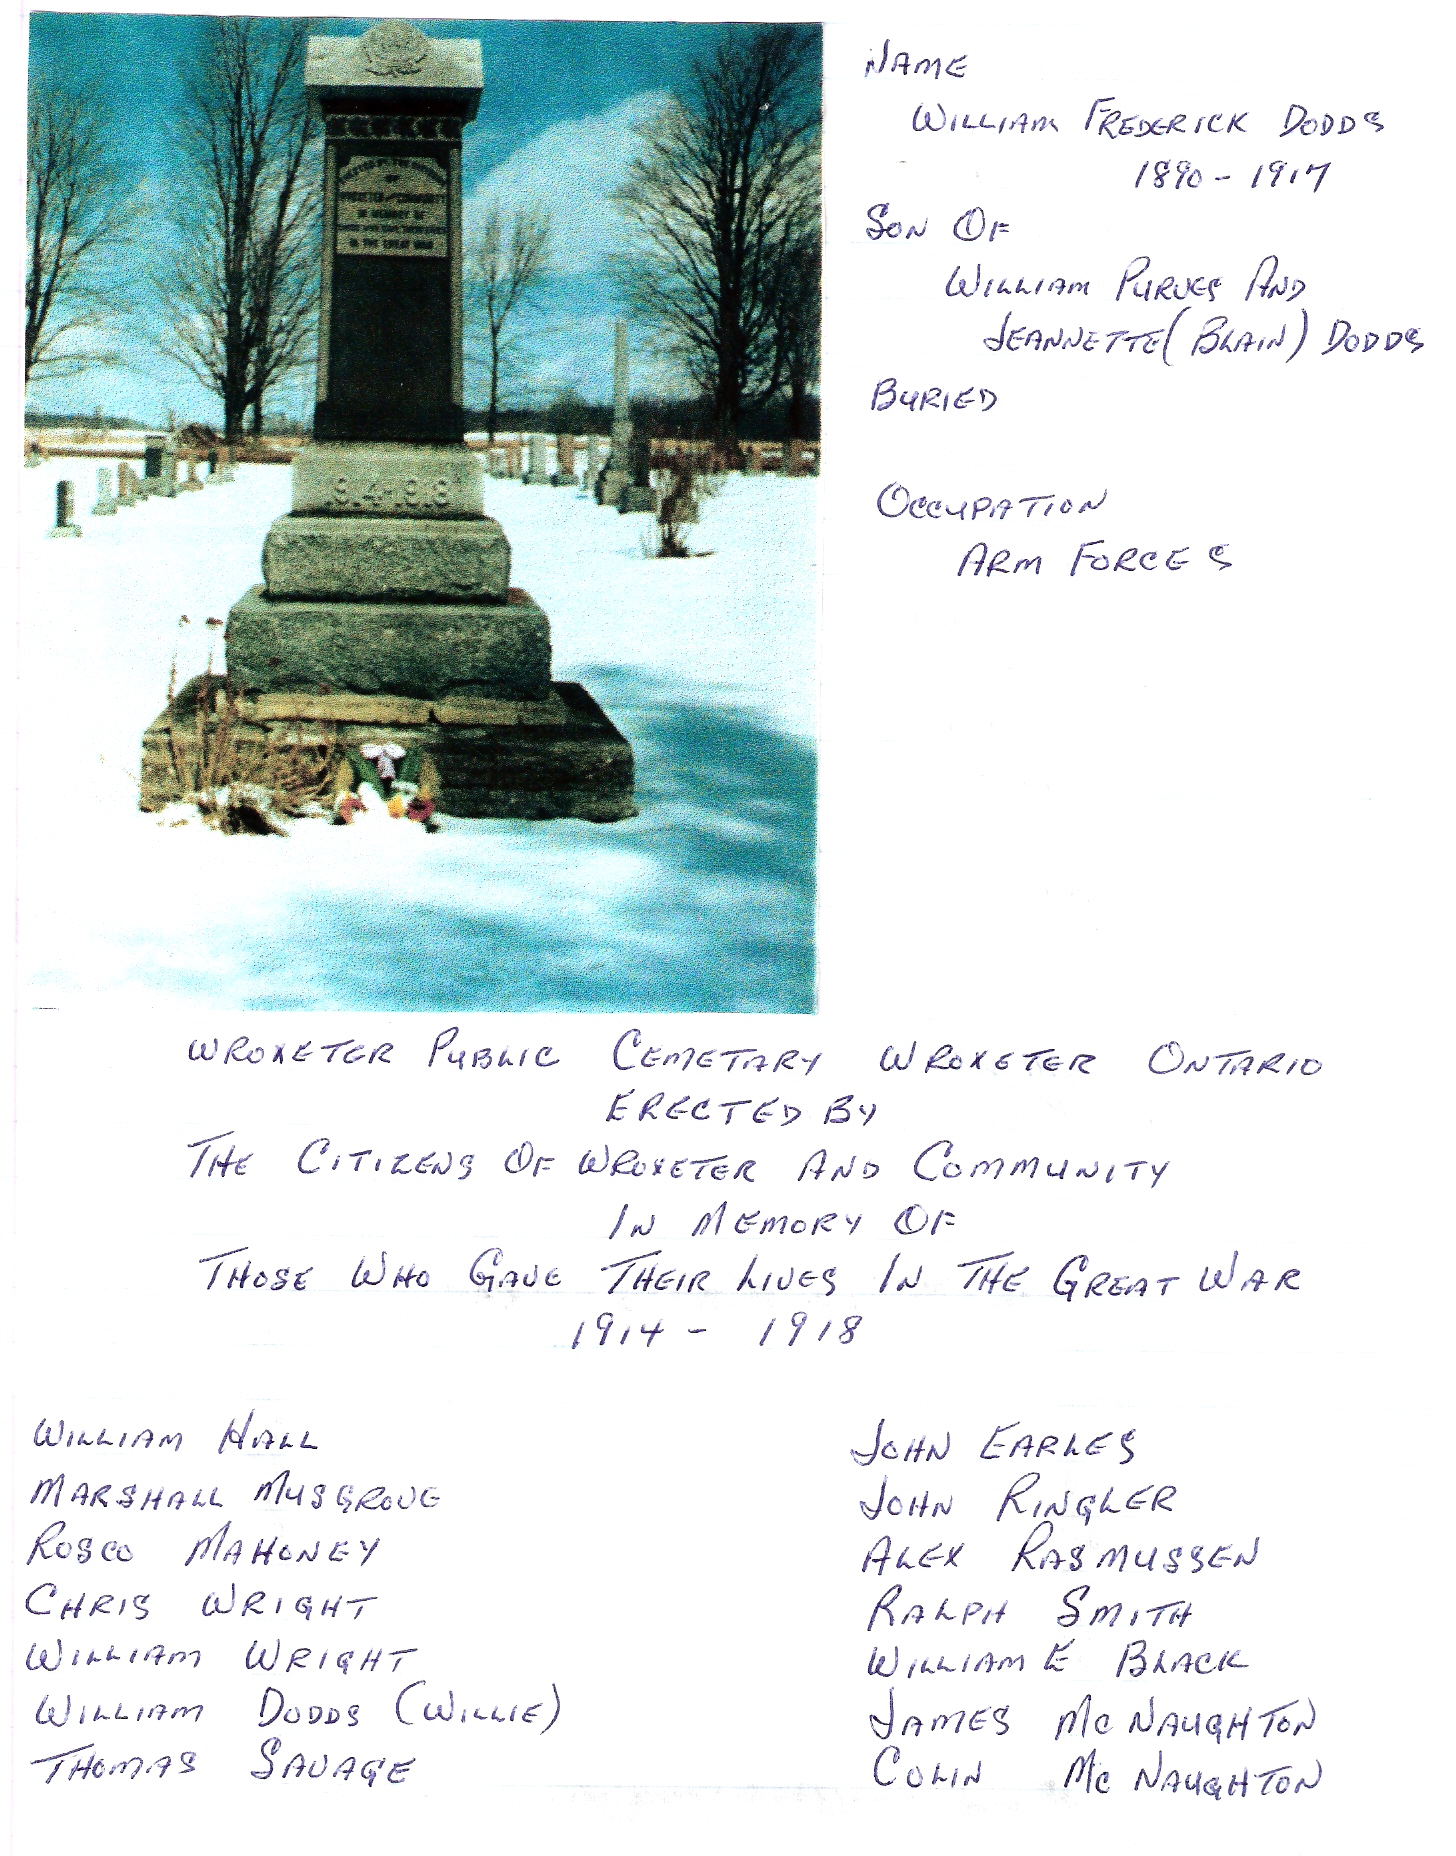 ERECTED BY THE CITIZENS
OF
WROXETER AND COMMUNITY
IN MEMORY OF
THOSE WHO GAVE THEIR LIVES
IN THE GREAT WAR
1914-1918
NAME
WILLIAM FREDERICK DODDS
1890-1917
SON OF
WILLIAM PURVES AND
JEANNETTE (BLAIN) DODDS
BURIED
OCCUPATION
ARM FORCES
WROXETER PUBLIC CEMETARY WROXETER ONTARIO
ERECTED BY
THE CITIZENS OF WROXETER AND COMMUNITY
IN MEMORY OF
THOSE WHO GAVE THEIR LIVES IN THE GREAT WAR
1914 - 1918
WILLIAM HALL
MARSHALL MUSGROVE
ROSCO MAHONEY
CHRIS WRIGHT
WILLIAM WRIGHT
WILLIAM DODDS (WILLIE)
THOMAS SAVAGE
JOHN EARLES
JOHN RINGLER
ALEX RASMUSSEN
RALPH SMITH
WILLIAM E BLACK
JAMES MC NAUGHTON
COLIN MC NAUGHTON